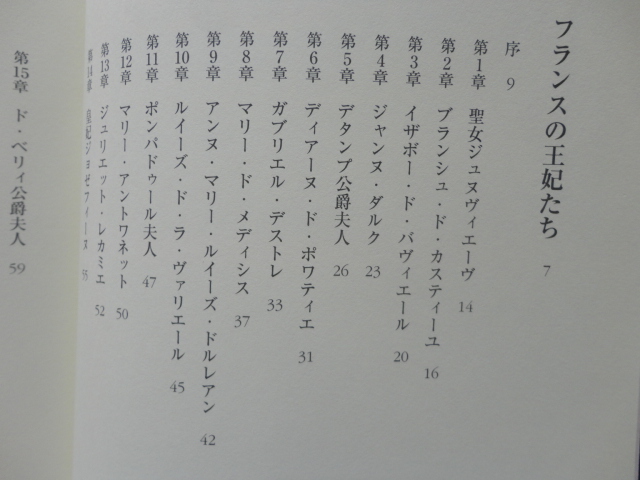 フランスの王妃たち 7
序 9
第1章 聖女ジュヌヴィエーヴ 14
第2章 ブランシュ・ド・カスティーユ 16
第3章 イザボー・ド・バヴィエール 20
第4章 ジャンヌ・ダルク 23
第5章 デタンプ公爵夫人 26
第6章 ディアーヌ・ド・ポワティエ 31
第7章 ガブリエル・デストレ 33
第8章 マリー・ド・メディシス 37
第9章 アンヌ・マリー・ルイーズ・ドルレアン 42
第10章 ルイーズ・ド・ラ・ヴァリエール 45
第11章 ポンパドゥール夫人 47
第12章 マリー・アントワネット 50
第13章 ジュリエット・レカミエ 52
第14章 皇妃ジョゼフィーヌ 55
第15章 ド・ベリィ公爵夫人 59